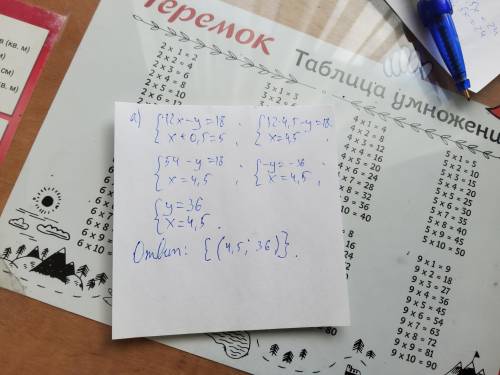 Теремок
Таблица умножени
в (кв. м)
м)
см)
кв. м)
2 x 1 = 2
2 x 2 = 4
2 x 3 = 6
2 x 4 = 8
2 x 5 = 10
2 x 6 = 12
3 x 1 = 3
а) {12x-y=18 ; {12·4,5-y=18
{x+0,5=5 {x=4,5 ;
{54-y=18 ; {-y=-36
{x=4,5 {x=4,5 ;
{y=36
{x=4,5.
Ответ: {(4,5; 36)}.
4 x 1 = 4
4 x 2 = 8
4 x 3 = 12
4 x 4 = 16
4 x 5 = 20
4 x 6 = 24
4 x 7 = 28
4 x 8 = 32
4 x 9 = 36
4 x 10 = 40
5 x 1 = 5
5 x 2 = 10
5 x 3 = 15
5 x 4 = 20
5 x 5 = 25
5 x 6 = 30
5 x 7 = 35
5 x 8 = 40
5 x 9 = 45
5 x 10 = 50
6 x 1 =
6 x 2 =
6 x 3 =
6 x 4 =
6 x 5 =
6 x 6 =
6 x 7 =
6 x 8 =
6 x 9 =
6 x 10 =
9 x 1 = 9
9 x 2 = 18
9 x 3 = 27
9 x 4 = 36
9 x 5 = 45
9 x 6 = 54
9 x 7 = 63
9 x 8 = 72
9 x 9 = 81
9 x 10 = 90